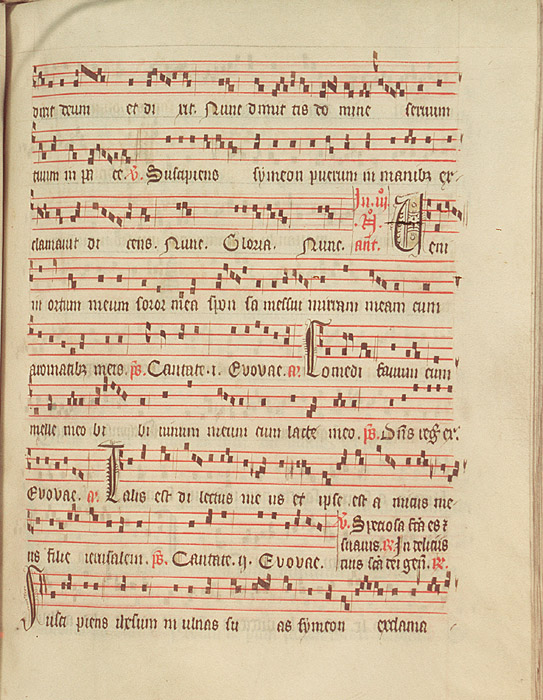 dixit deum et di xit. Nunc dimit tis do mine servum
tuum in pa ce. v. Suscipiens symeon puerum in manibz ex
clamavit di cens. Nunc. Gloria. Nunc. In. iij. N. ant. Veni
in ortum meum soror mea spon sa messui mirram meam cum
aromatibz meis. ps. Cantate. i. Evovae. a. Comedi favum cum
melle meo bi bi vinum meum cum lacte meo. ps. Dns reg. ex.
Evovae. a. Talis est di lectus me us et ipse est a micus me
us filie ierusalem. ps. Cantate. ij. Evovae.
v. Speciosa fca es z
suavis. R. In deliciis
tuis sca dei gen. R.
Susci piens ihesum in ulnas su as symeon exclama